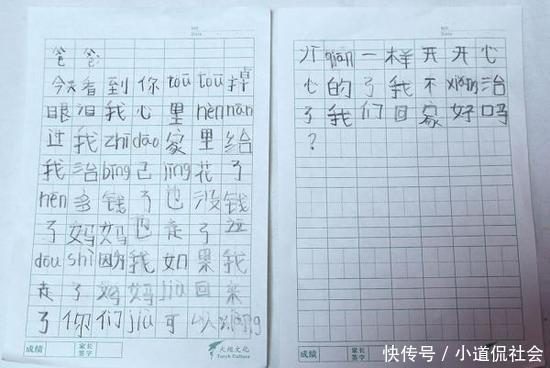 爸爸:
今天看到你tōu tōu掉
眼泪我心里hēn nān
过我zhī dāo家里给
我治bīng已jīng花了
hēn多钱了也没钱
了妈妈也走了这
dōu shì因为我如果我
走了妈妈jiū回来
了你们jiū可以
成绩 家长签字 Torch Culture
qiān一样开开心
心的了我不xiāng治
了我们回家好吗
?
成绩 家长签字
快传号 / 小道侃社会